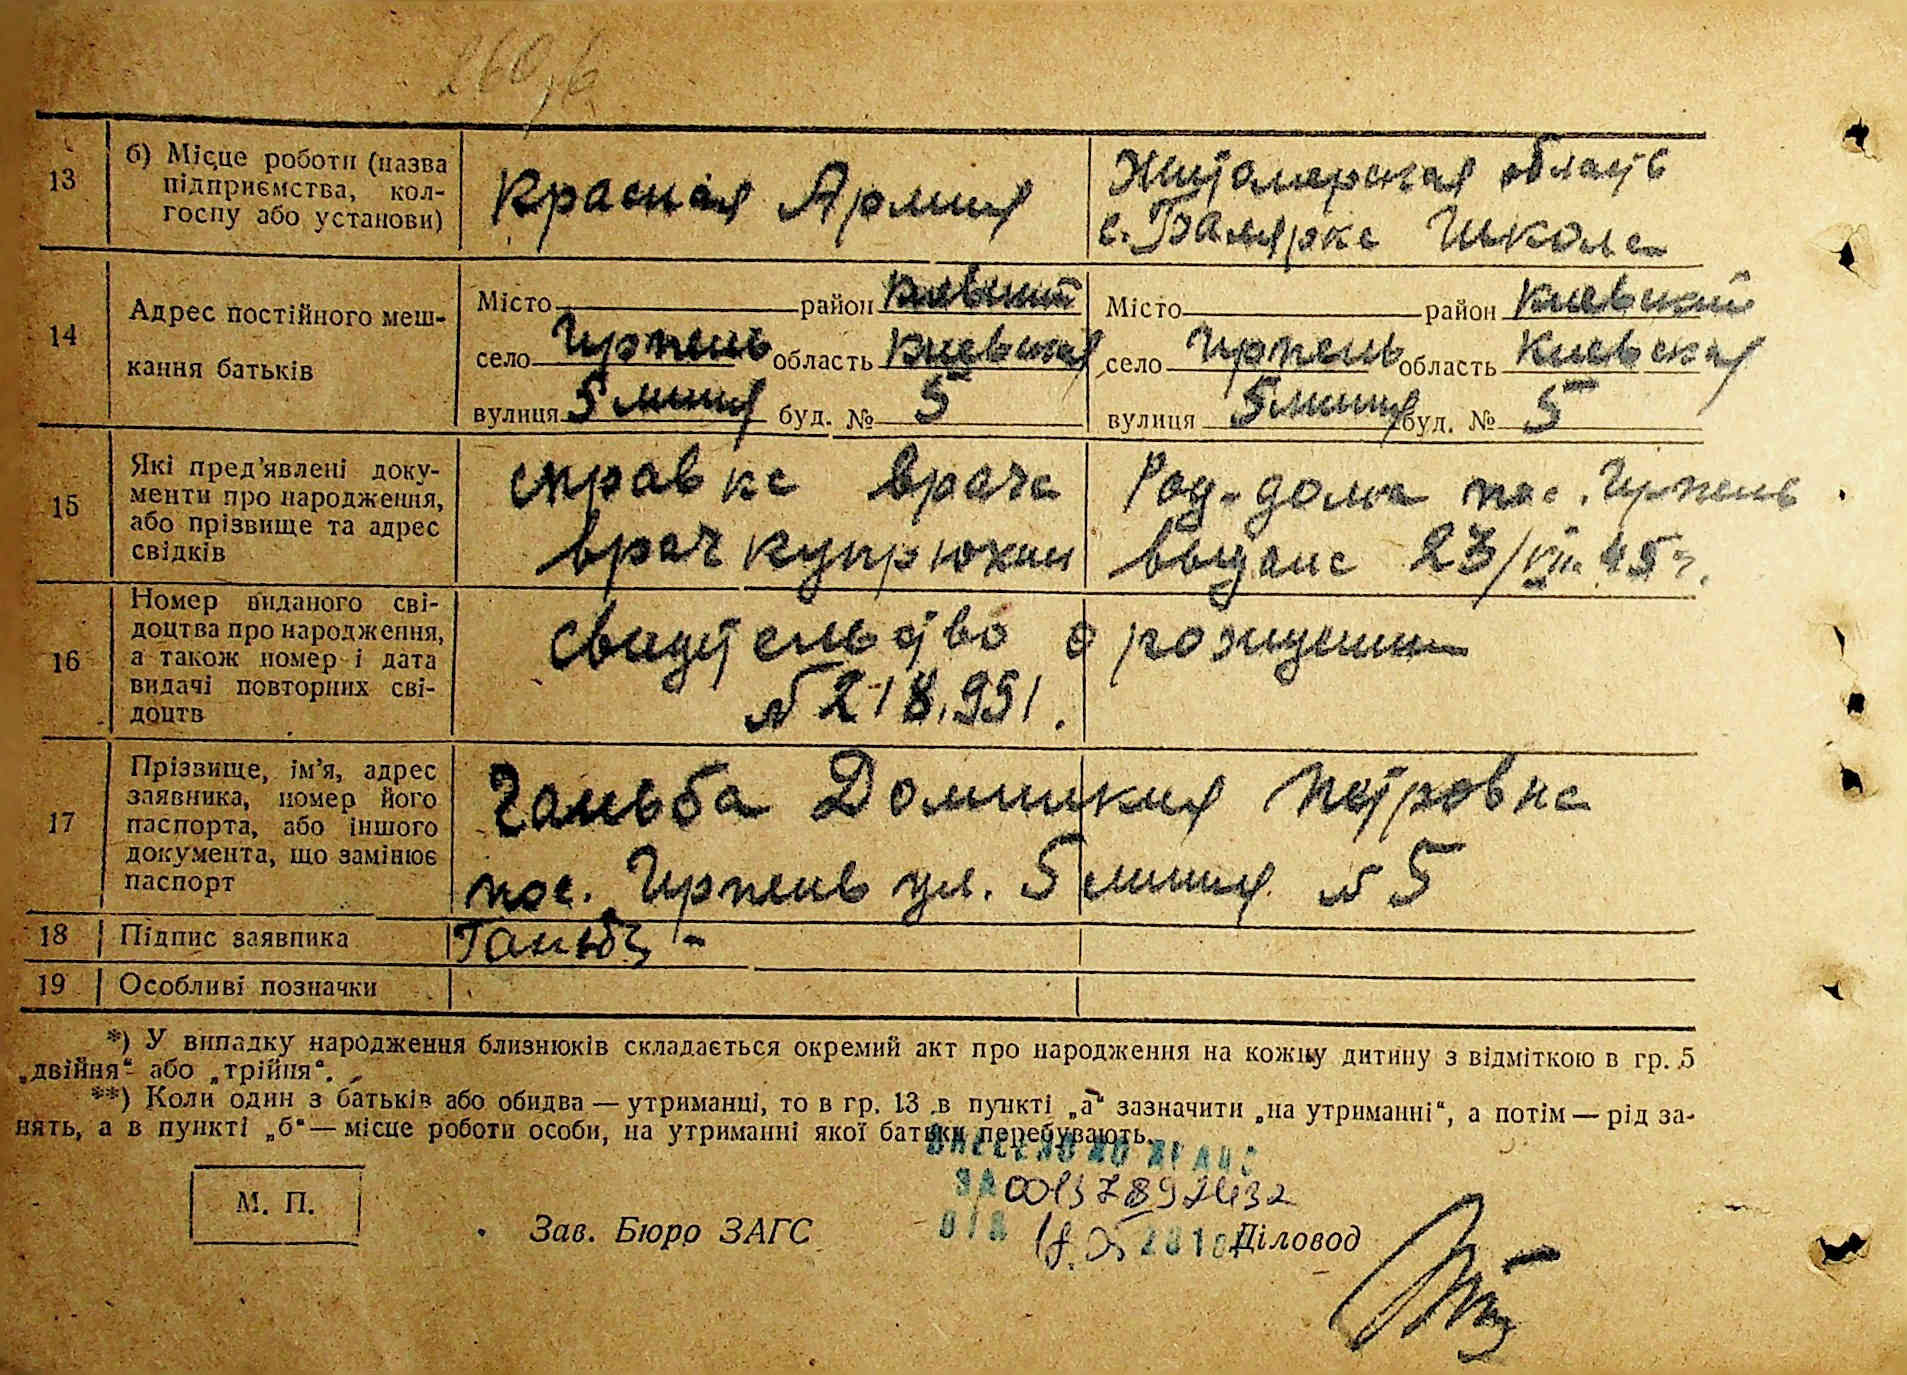 13
б) Місце роботи (назва
підприємства, кол-
госпу або установи)
Красная Армия
Житомирская область
с. Школа
14
Адрес постійного меш-
кання батьків
Місто район Киевский
село Ирпень область Киевская
вулиця 5 линия буд. № 5
Місто район Киевский
село Ирпень область Киевская
вулиця 5 линия буд. № 5
15
Які пред'явлені доку-
менти про народження,
або прізвище та адрес
свідків
справка врача
врач Купрюхин
Род-дома пос. Ирпень
выдана 23/VII 45 г.
16
Номер виданого сві-
доцтва про народження,
а також номер і дата
видачі повторних сві-
доцтв
свидетельство о рождении
№ 218.951.
17
Прізвище, ім'я, адрес
заявника, номер його
паспорта, або іншого
документа, що замінює
паспорт
Ганьба Доминикия Петровна
пос. Ирпень ул. 5 линия № 5
18
Підпис заявника
Ганьба
19
Особливі позначки
*) У випадку народження близнюків складається окремий акт про народження на кожну дитину з відміткою в гр. 5
„двійня“ або „трійня“.
**) Коли один з батьків або обидва — утриманці, то в гр. 13 в пункті „а“ зазначити „на утриманні“, а потім — рід за-
нять, а в пункті „б“ — місце роботи особи, на утриманні якої батьки перебувають.
ВНЕСЕНО ДО ДРАЦС
ЗА
ВІД
М. П.
Зав. Бюро ЗАГС
Діловод